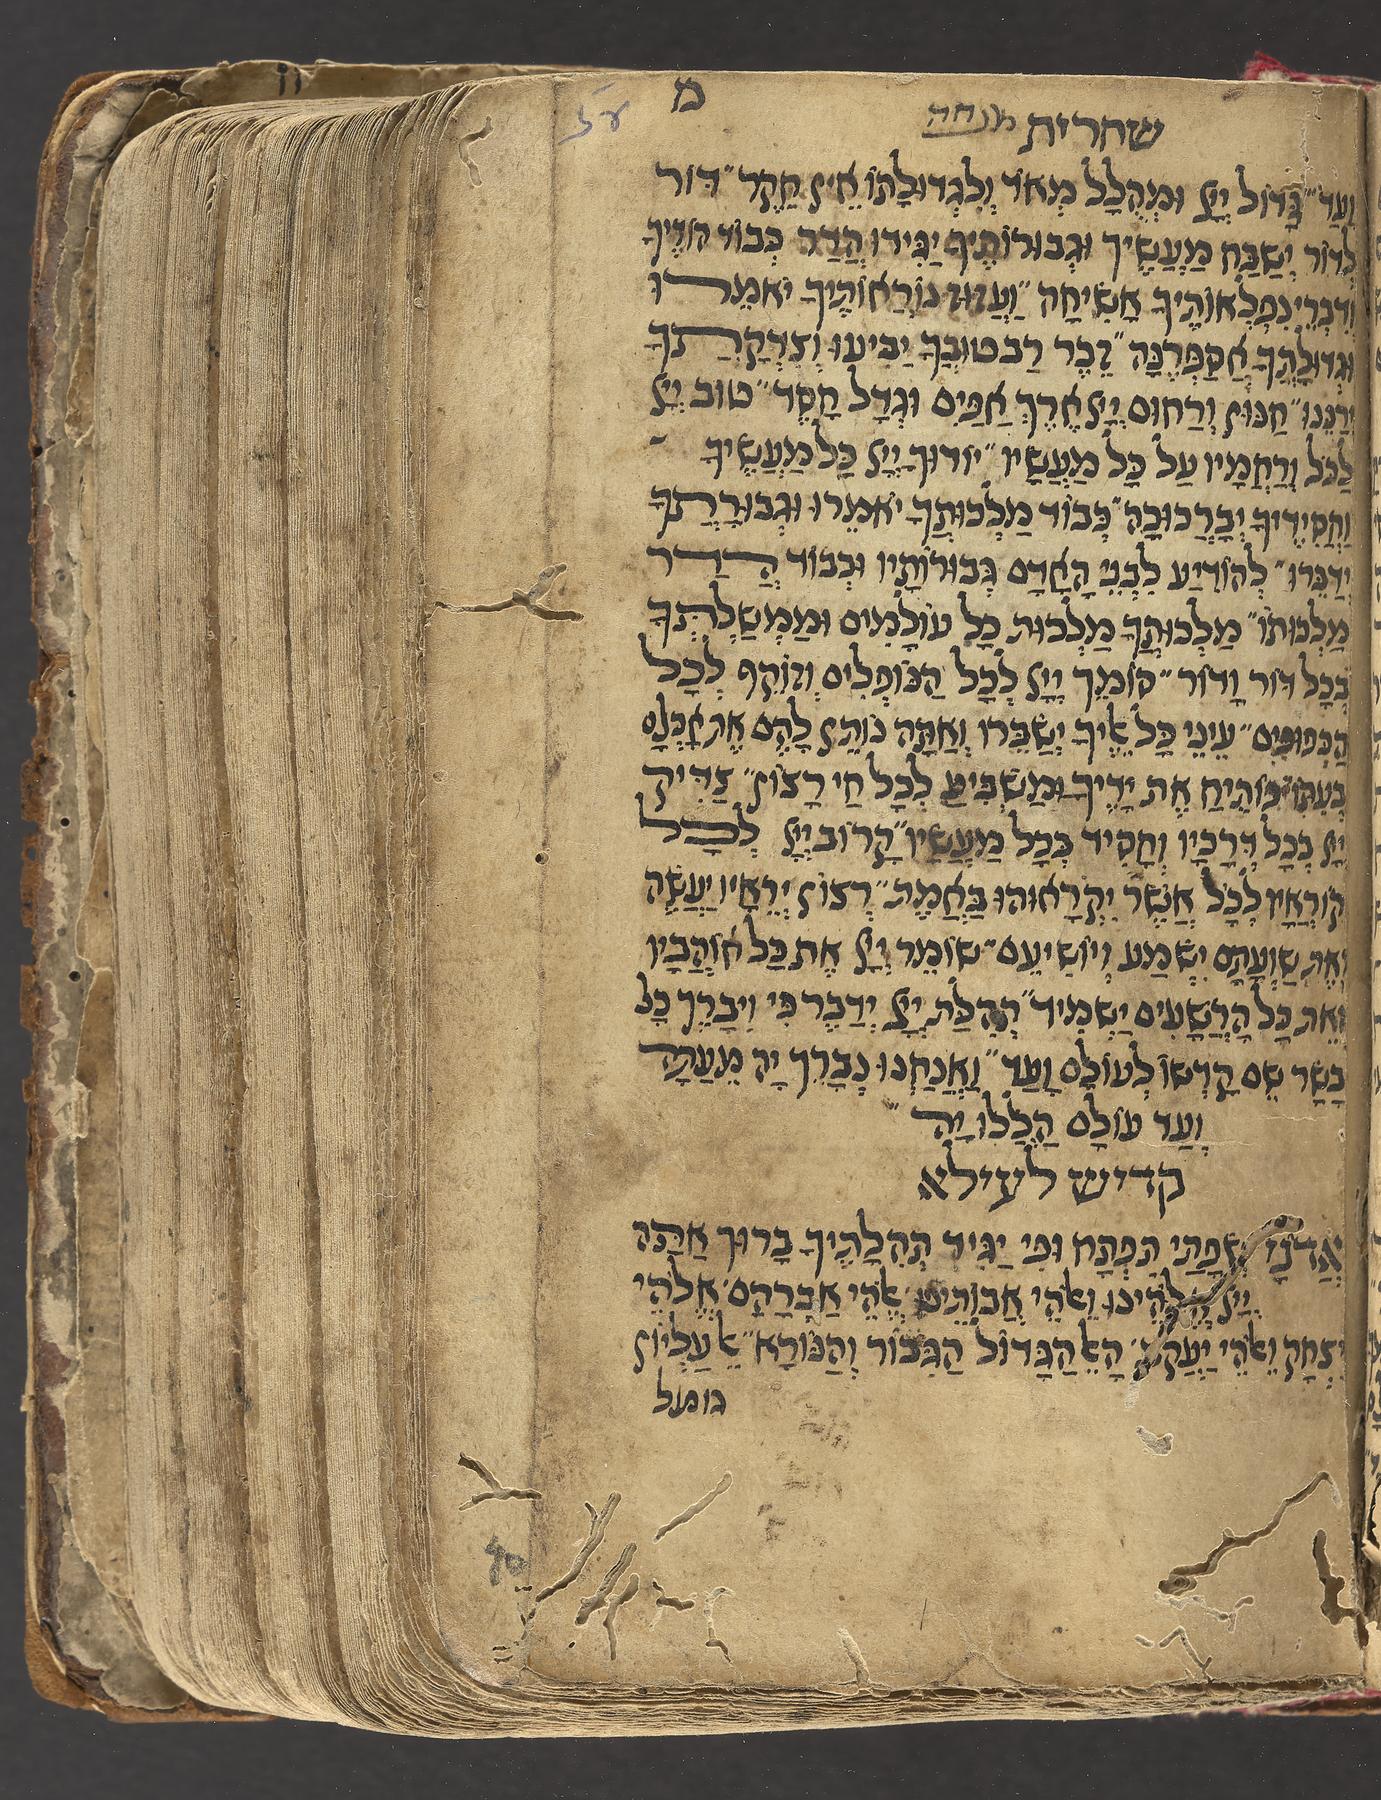 מ
שחרית מנחה
וָעֶד״ גָּדוֹל יְיָ֗ וּמְהֻלָּל מְאוֹד וְלִגְדוּלָּתוֹ אֵין חֵקֶר״ דּוֹר
לְדוֹר יְשַׁבַּח מַעֲשֶׂיךָ וּגְבוּרוֹתֶיךָ יַגִּידוּ הֲדַר כְּבוֹד הוֹדֶיךָ
וְדִבְרֵי נִפְלְאוֹתֶיךָ אָשִׂיחָה״ וֶעֱזוּז נוֹרְאוֹתֶיךָ יֹאמֵרוּ
וּגְדוּלָּתְךָ אֲסַפְּרֶנָּה״ זֵכֶר רַב טוּבְךָ יַבִּיעוּ וְצִדְקָתְךָ
יְרַנֵּנוּ״ חַנּוּן וְרַחוּם יְיָ אֶרֶךְ אַפַּיִם וּגְדָל חָסֶד״ טוֹב יְיָ
לַכֹּל וְרַחֲמָיו עַל כָּל מַעֲשָׂיו״ יוֹדוּךָ יְיָ כָּל מַעֲשֶׂיךָ
וַחֲסִידֶיךָ יְבָרְכוּכָה״ כְּבוֹד מַלְכוּתְךָ יֹאמֵרוּ וּגְבוּרָתְךָ
יְדַבֵּרוּ״ לְהוֹדִיעַ לִבְנֵי הָאָדָם גְּבוּרוֹתָיו וּכְבוֹד הֲדַר
מַלְכוּתוֹ״ מַלְכוּתְךָ מַלְכוּת כָּל עוֹלָמִים וּמֶמְשַׁלְתְּךָ
בְּכָל דּוֹר וָדוֹר״ סוֹמֵךְ יְיָ לְכָל הַנּוֹפְלִים וְזוֹקֵף לְכָל
הַכְּפוּפִים״ עֵינֵי כָל אֵלֶיךָ יְשַׂבֵּרוּ וְאַתָּה נוֹתֵן לָהֶם אֶת אָכְלָם
בְּעִתּוֹ״ פּוֹתֵיחַ אֶת יָדֶיךָ וּמַשְׂבִּיעַ לְכָל חַי רָצוֹן״ צַדִּיק
יְיָ בְּכָל דְּרָכָיו וְחָסִיד בְּכָל מַעֲשָׂיו״ קָרוֹב יְיָ לְכָל
קוֹרְאָיו לְכֹל אֲשֶׁר יִקְרָאוּהוּ בֶּאֱמֶת״ רְצוֹן יְרֵאָיו יַעֲשֶׂה
וְאֶת שַׁוְעָתָם יִשְׁמַע וְיוֹשִׁיעֵם״ שׁוֹמֵר יְיָ אֶת כָּל אוֹהֲבָיו
וְאֵת כָּל הָרְשָׁעִים יַשְׁמִיד״ תְּהִלַּת יְיָ יְדַבֶּר פִּי וִיבָרֵךְ כָּל
בָּשָׂר שֵׁם קָדְשׁוֹ לְעוֹלָם וָעֶד״ וַאֲנַחְנוּ נְבָרֵךְ יָהּ מֵעַתָּה
וְעַד עוֹלָם הַלְלוּיָהּ״
קדיש לעילא
אֲדֹנָי שְׂפָתַי תִּפְתָּח וּפִי יַגִּיד תְּהִלָּתֶיךָ בָּרוּךְ אַתָּה
יְיָ אֱלֹהֵינוּ וֵאלֹהֵי אֲבוֹתֵינוּ אֱלֹהֵי אַבְרָהָם אֱלֹהֵי
יִצְחָק וֵאלֹהֵי יַעֲקֹב הָאֵל הַגָּדוֹל הַגִּבּוֹר וְהַנּוֹרָא״ אֵל עֶלְיוֹן
גומל